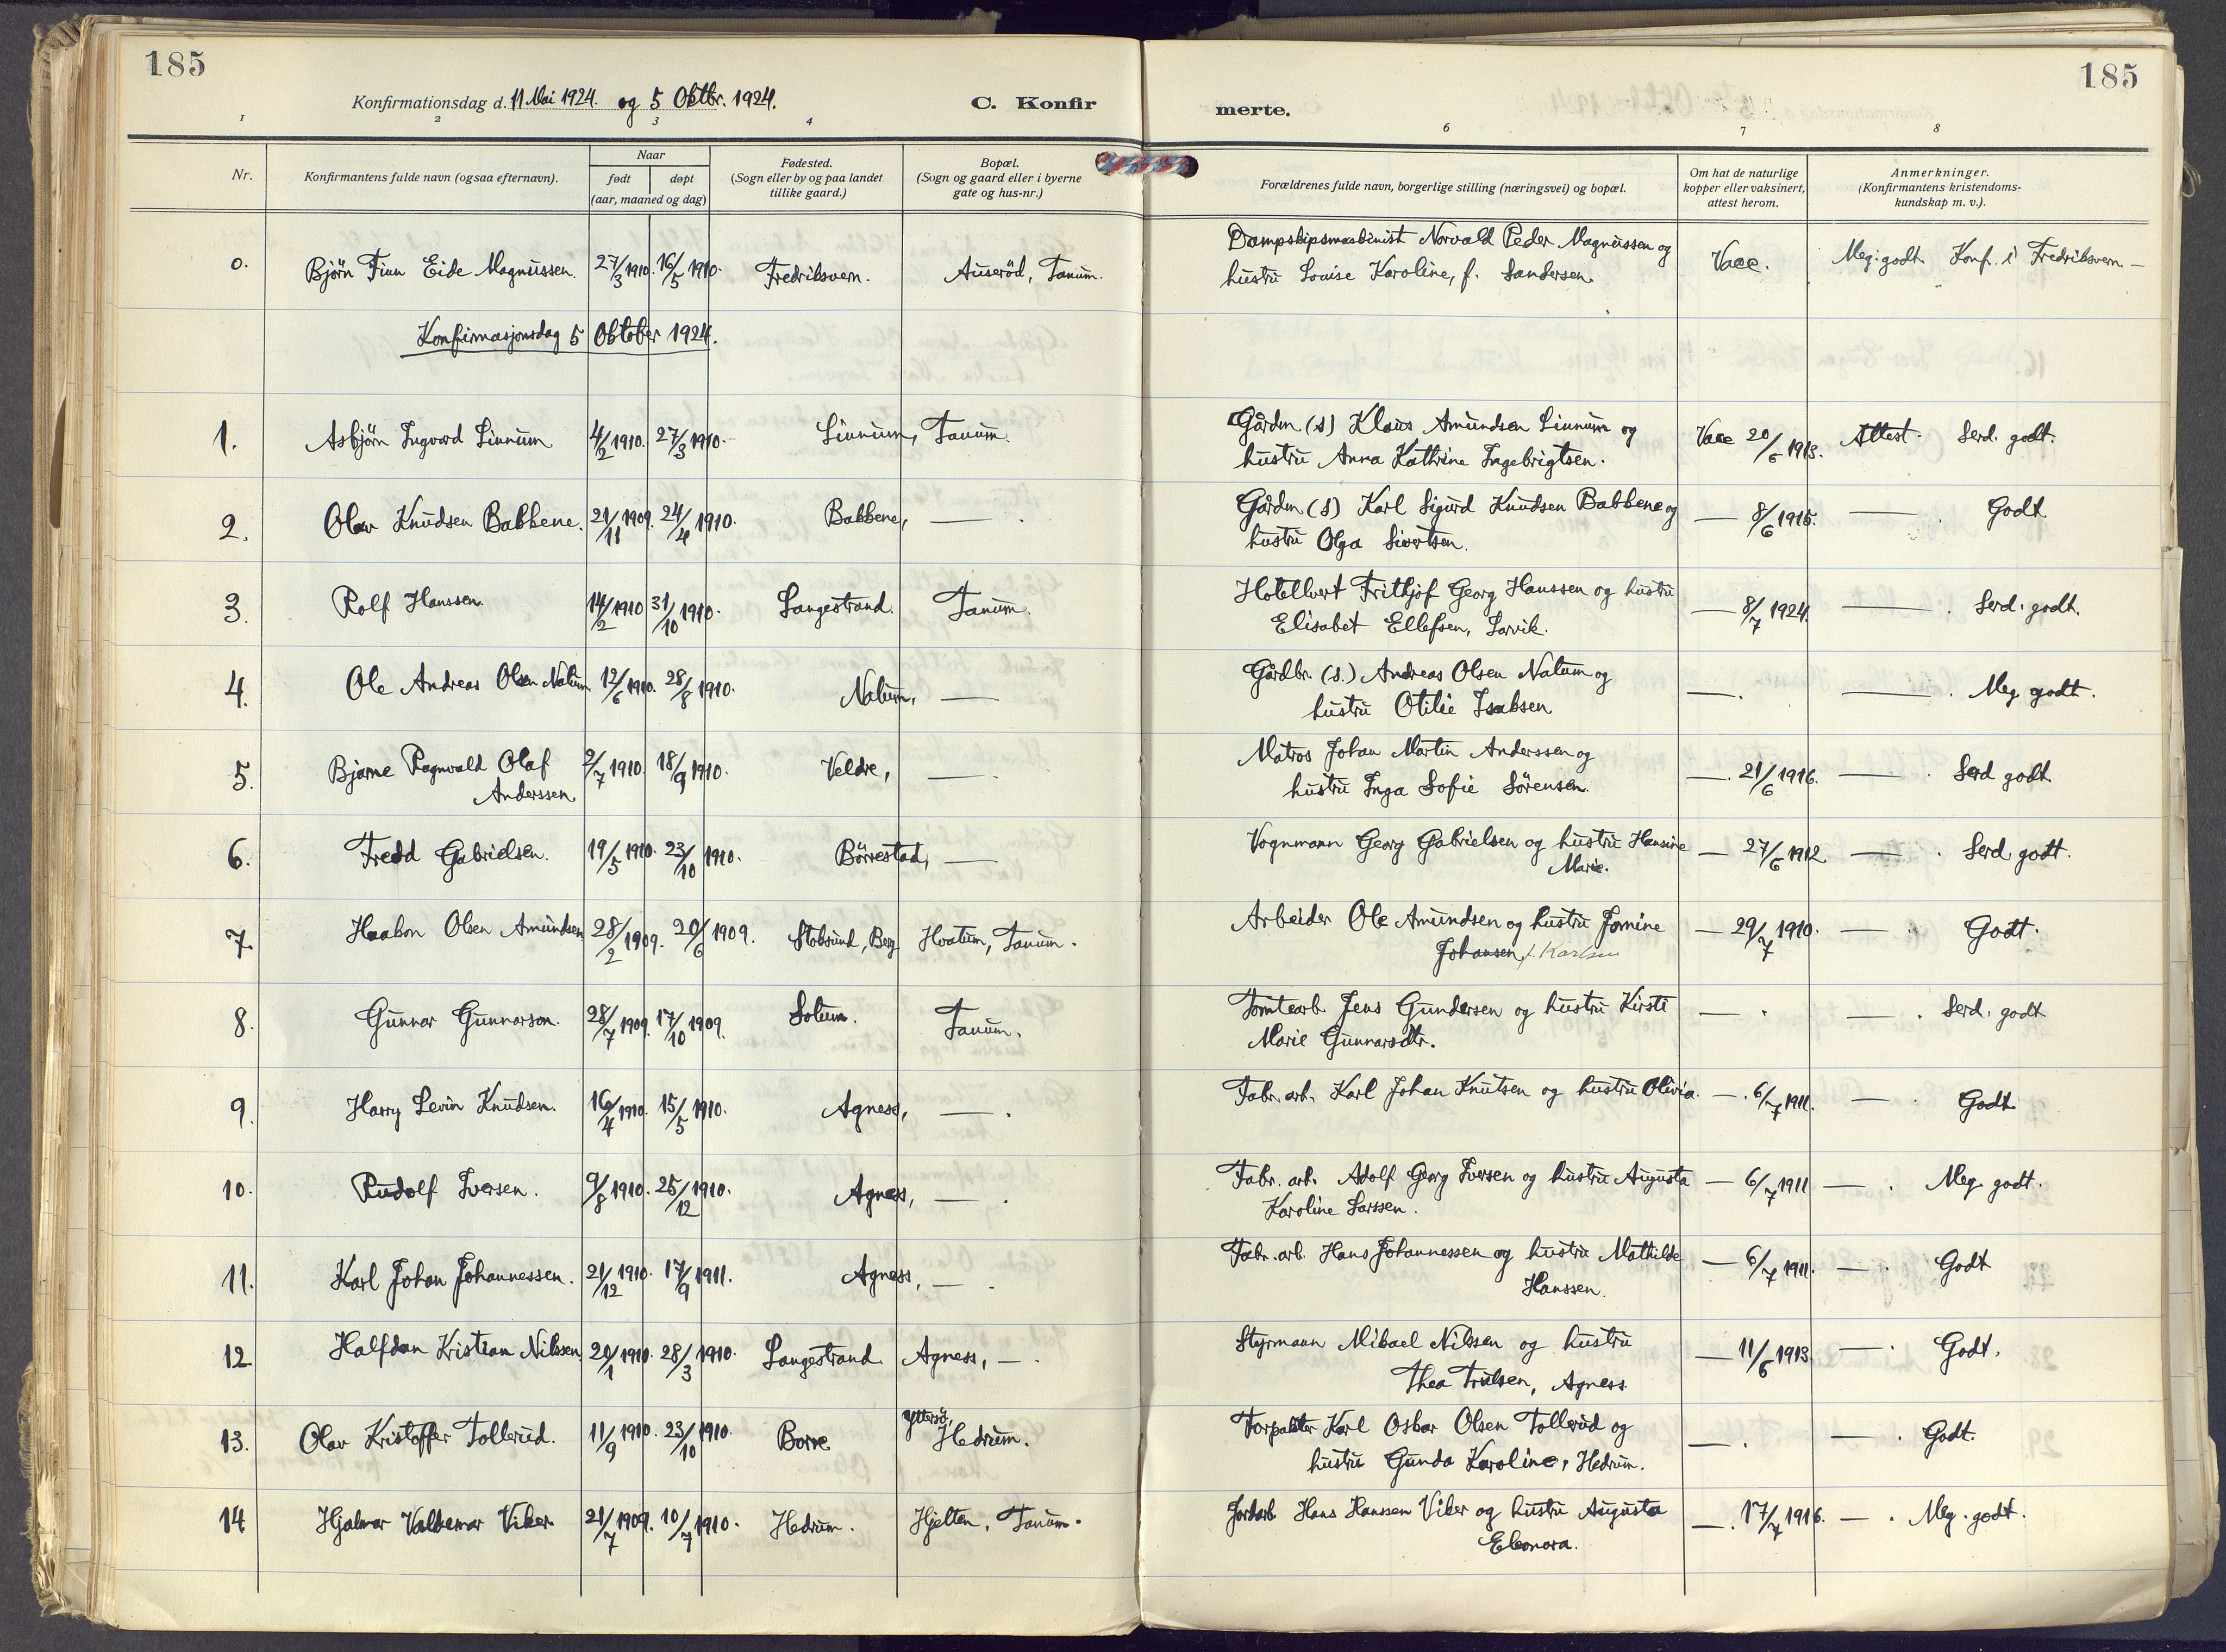 185
185
Konfirmationsdag d. 11 Mai 1924. og 5 Oktbr. 1924.
C. Konfir
merte.
1 2 3 4 6 7 8
Nr.
Konfirmantens fulde navn (ogsaa efternavn).
Naar
født døpt
(aar, maaned og dag)
Fødested.
(Sogn eller by og paa landet
tillike gaard.)
Bopæl.
(Sogn og gaard eller i byerne
gate og hus-nr.)
Forældrenes fulde navn, borgerlige stilling (næringsvei) og bopæl.
Om hat de naturlige
kopper eller vaksinert,
attest herom.
Anmerkninger.
(Konfirmantens kristendoms-
kundskap m. v.).
0. Björn Finn Eide Magnussen. 27/3 1910. 16/5 1910. Fredriksvern. Auseröd, Tanum. Dampskipsmaskinist Norvald Peder Magnussen og
hustru Louise Karoline, f. Sandersen. Vacc. Meg. godt. Konf. i Fredriksvern. —
Konfirmasjonsdag 5 Oktober 1924.
1. Asbjörn Ingvard Linnum 4/2 1910. 27/3 1910. Linnum, Tanum. Gårdm (s) Klaus Amundsen Linnum og
hustru Anna Kathrine Ingebrigtsen. Vacc 20/6 1913. Attest. Serd. godt.
2. Olav Knudsen Bakkene. 21/11 1909. 24/4 1910. Bakkene, — . Gårdm (s) Karl Sigurd Knudsen Bakkene og
hustru Olga Sivertsen. — 8/6 1915. — . Godt.
3. Rolf Hanssen. 14/2 1910 31/10 1910. Langestrand. Tanum. Hotellvert Frithjof Georg Hanssen og hustru
Elisabet Ellefsen, Larvik. — 8/7 1924. — . Serd. godt.
4. Ole Andreas Olsen Nalum 12/6 1910. 28/8 1910. Nalum, — Gårdbr. (s.) Andreas Olsen Nalum og
hustru Otilie Isaksen — . — . Meg godt.
5. Bjarne Ragnvald Olaf
Anderssen. 2/7 1910. 18/9 1910. Veldre, — . Matros Johan Martin Anderssen og
hustru Inga Sofie Sörensen. — . 21/6 1916. — . Serd godt
6. Fredd Gabrielsen. 19/5 1910. 23/10 1910. Börrestad, — Vognmann Georg Gabrielsen og hustru Hansine
Marie. — 27/6 1912 — . Serd godt.
7. Haakon Olsen Amundsen 28/2 1909. 20/6 1909. Stoksund, Berg Hvatum, Tanum. Arbeider Ole Amundsen og hustru Jornine
Johansen f. Karlsen — 29/7 1910. — . Godt.
8. Gunnar Gunnarson. 28/7 1909. 17/10 1909. Solum. Tanum. Tomtearb. Jens Gundersen og hustru Kirsti
Marie Gunnarsdtr. — . — . Serd. godt
9. Harry Levin Knudsen. 16/4 1910. 15/5 1910. Agness, — . Fabr. arb. Karl Johan Knutsen og hustru Olivia. — . 6/7 1911. — . Godt
10. Rudolf Iversen. 9/8 1910. 25/12 1910. Agness, — . Fabr. arb. Adolf Georg Iversen og hustru Augusta
Karoline Larssen. — 6/7 1911 — . Meg godt.
11. Karl Johan Johannessen. 21/12 1910. 17/9 1911. Agness, — . Fabr. arb. Hans Johannessen og hustru Mathilde
Hanssen. — 6/7 1911. — . Godt
12 Halfdan Kristian Nilssen. 20/1 1910. 28/3 1910. Langestrand. Agness, — . Styrmann Mikael Nilssen og hustru
Thea Trulsen, Agness. — 11/6 1913. — . Godt.
13. Olav Kristoffer Tollerud. 11/9 1910. 23/10 1910. Borre Yttersö,
Hedrum. Forpakter Karl Oskar Olsen Tollerud og
hustru Gunda Karoline, Hedrum. — . — . Godt.
14 Hjalmar Valdemar Viker 21/7 1909. 10/7 1910. Hedrum. Hjelten, Tanum. Jordarb Hans Hanssen Viker og hustru Augusta
Eleonora. — . 17/7 1916. — . Meg. godt.